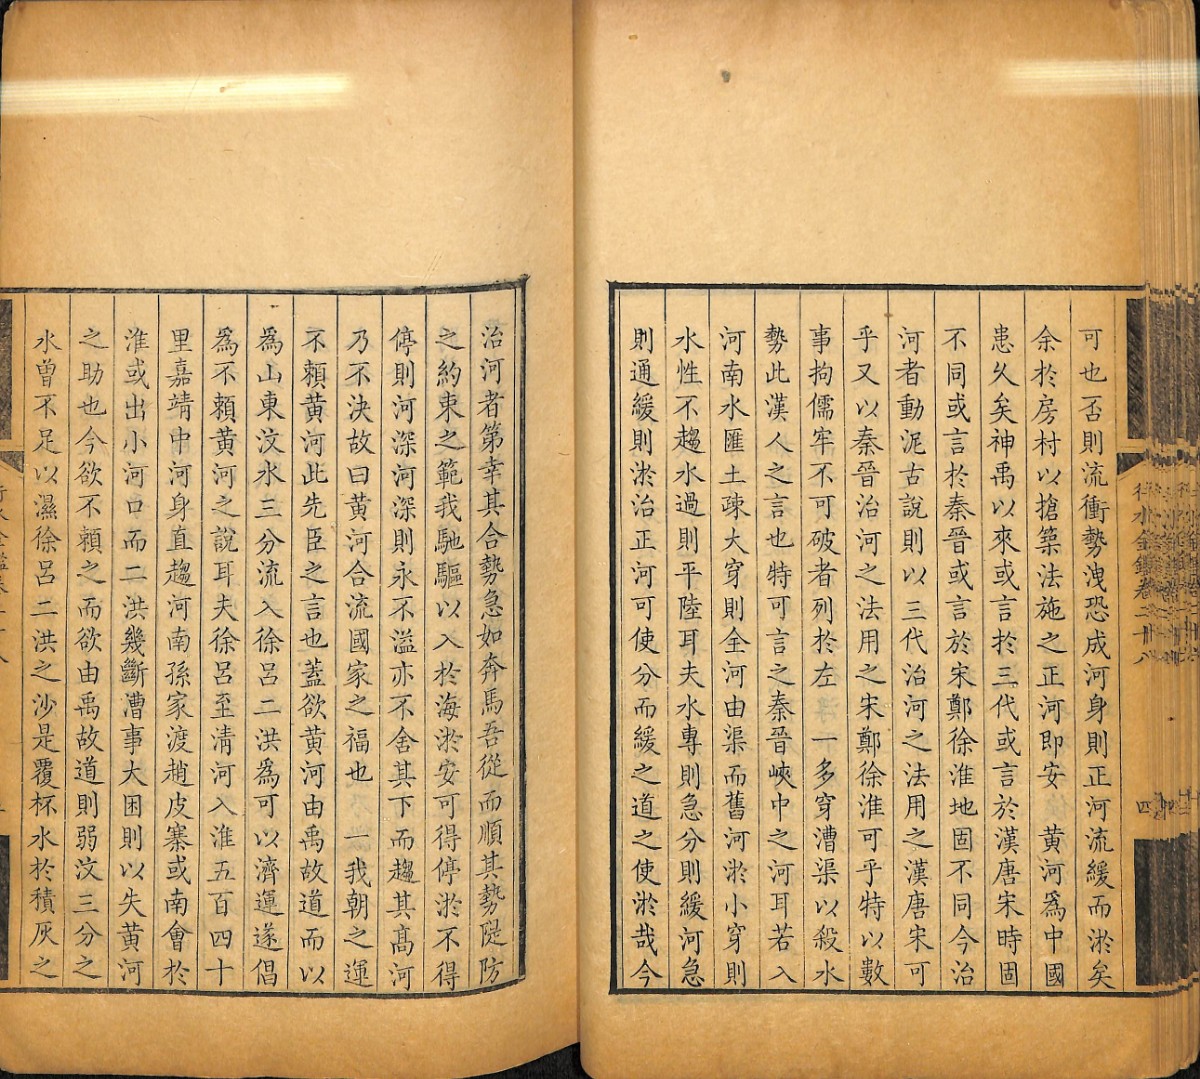 可也否則流衝勢洩恐成河身則正河流緩而淤矣
余於房村以搶築法施之正河即安　黄河為中國
患久矣神禹以來或言於三代或言於漢唐宋時固
不同或言於秦晉或言於宋鄭徐淮地固不同今治
河者動泥古說則以三代治河之法用之漢唐宋可
乎又以秦晉治河之法用之宋鄭徐淮可乎特以數
事拘儒牢不可破者列於左　一多穿漕渠以殺水
勢此漢人之言也特可言之秦晉峽中之河耳若入
河南水匯土疎大穿則全河由渠而舊河淤小穿則
水性不趨水過則平陸耳夫水專則急分則緩河急
則通緩則淤治正河可使分而緩之道之使淤哉今
治河者第幸其合勢急如奔馬吾從而順其勢隄防
之約束之範我馳驅以入於海淤安可得停淤不得
停則河深河深則永不溢亦不舍其下而趨其髙河
乃不決故曰黄河合流國家之福也　一我朝之運
不賴黄河此先臣之言也蓋欲黄河由禹故道而以
為山東汶水三分流入徐呂二洪為可以濟運遂倡
為不賴黄河之說耳夫徐呂至清河入淮五百四十
里嘉靖中河身直趨河南孫家渡趙皮寨或南會於
淮或出小河口而二洪幾斷漕事大困則以失黄河
之助也今欲不賴之而欲由禹故道則弱汶三分之
水曾不足以濕徐呂二洪之沙是覆杯水於積灰之
行水金鑑卷二十八
四